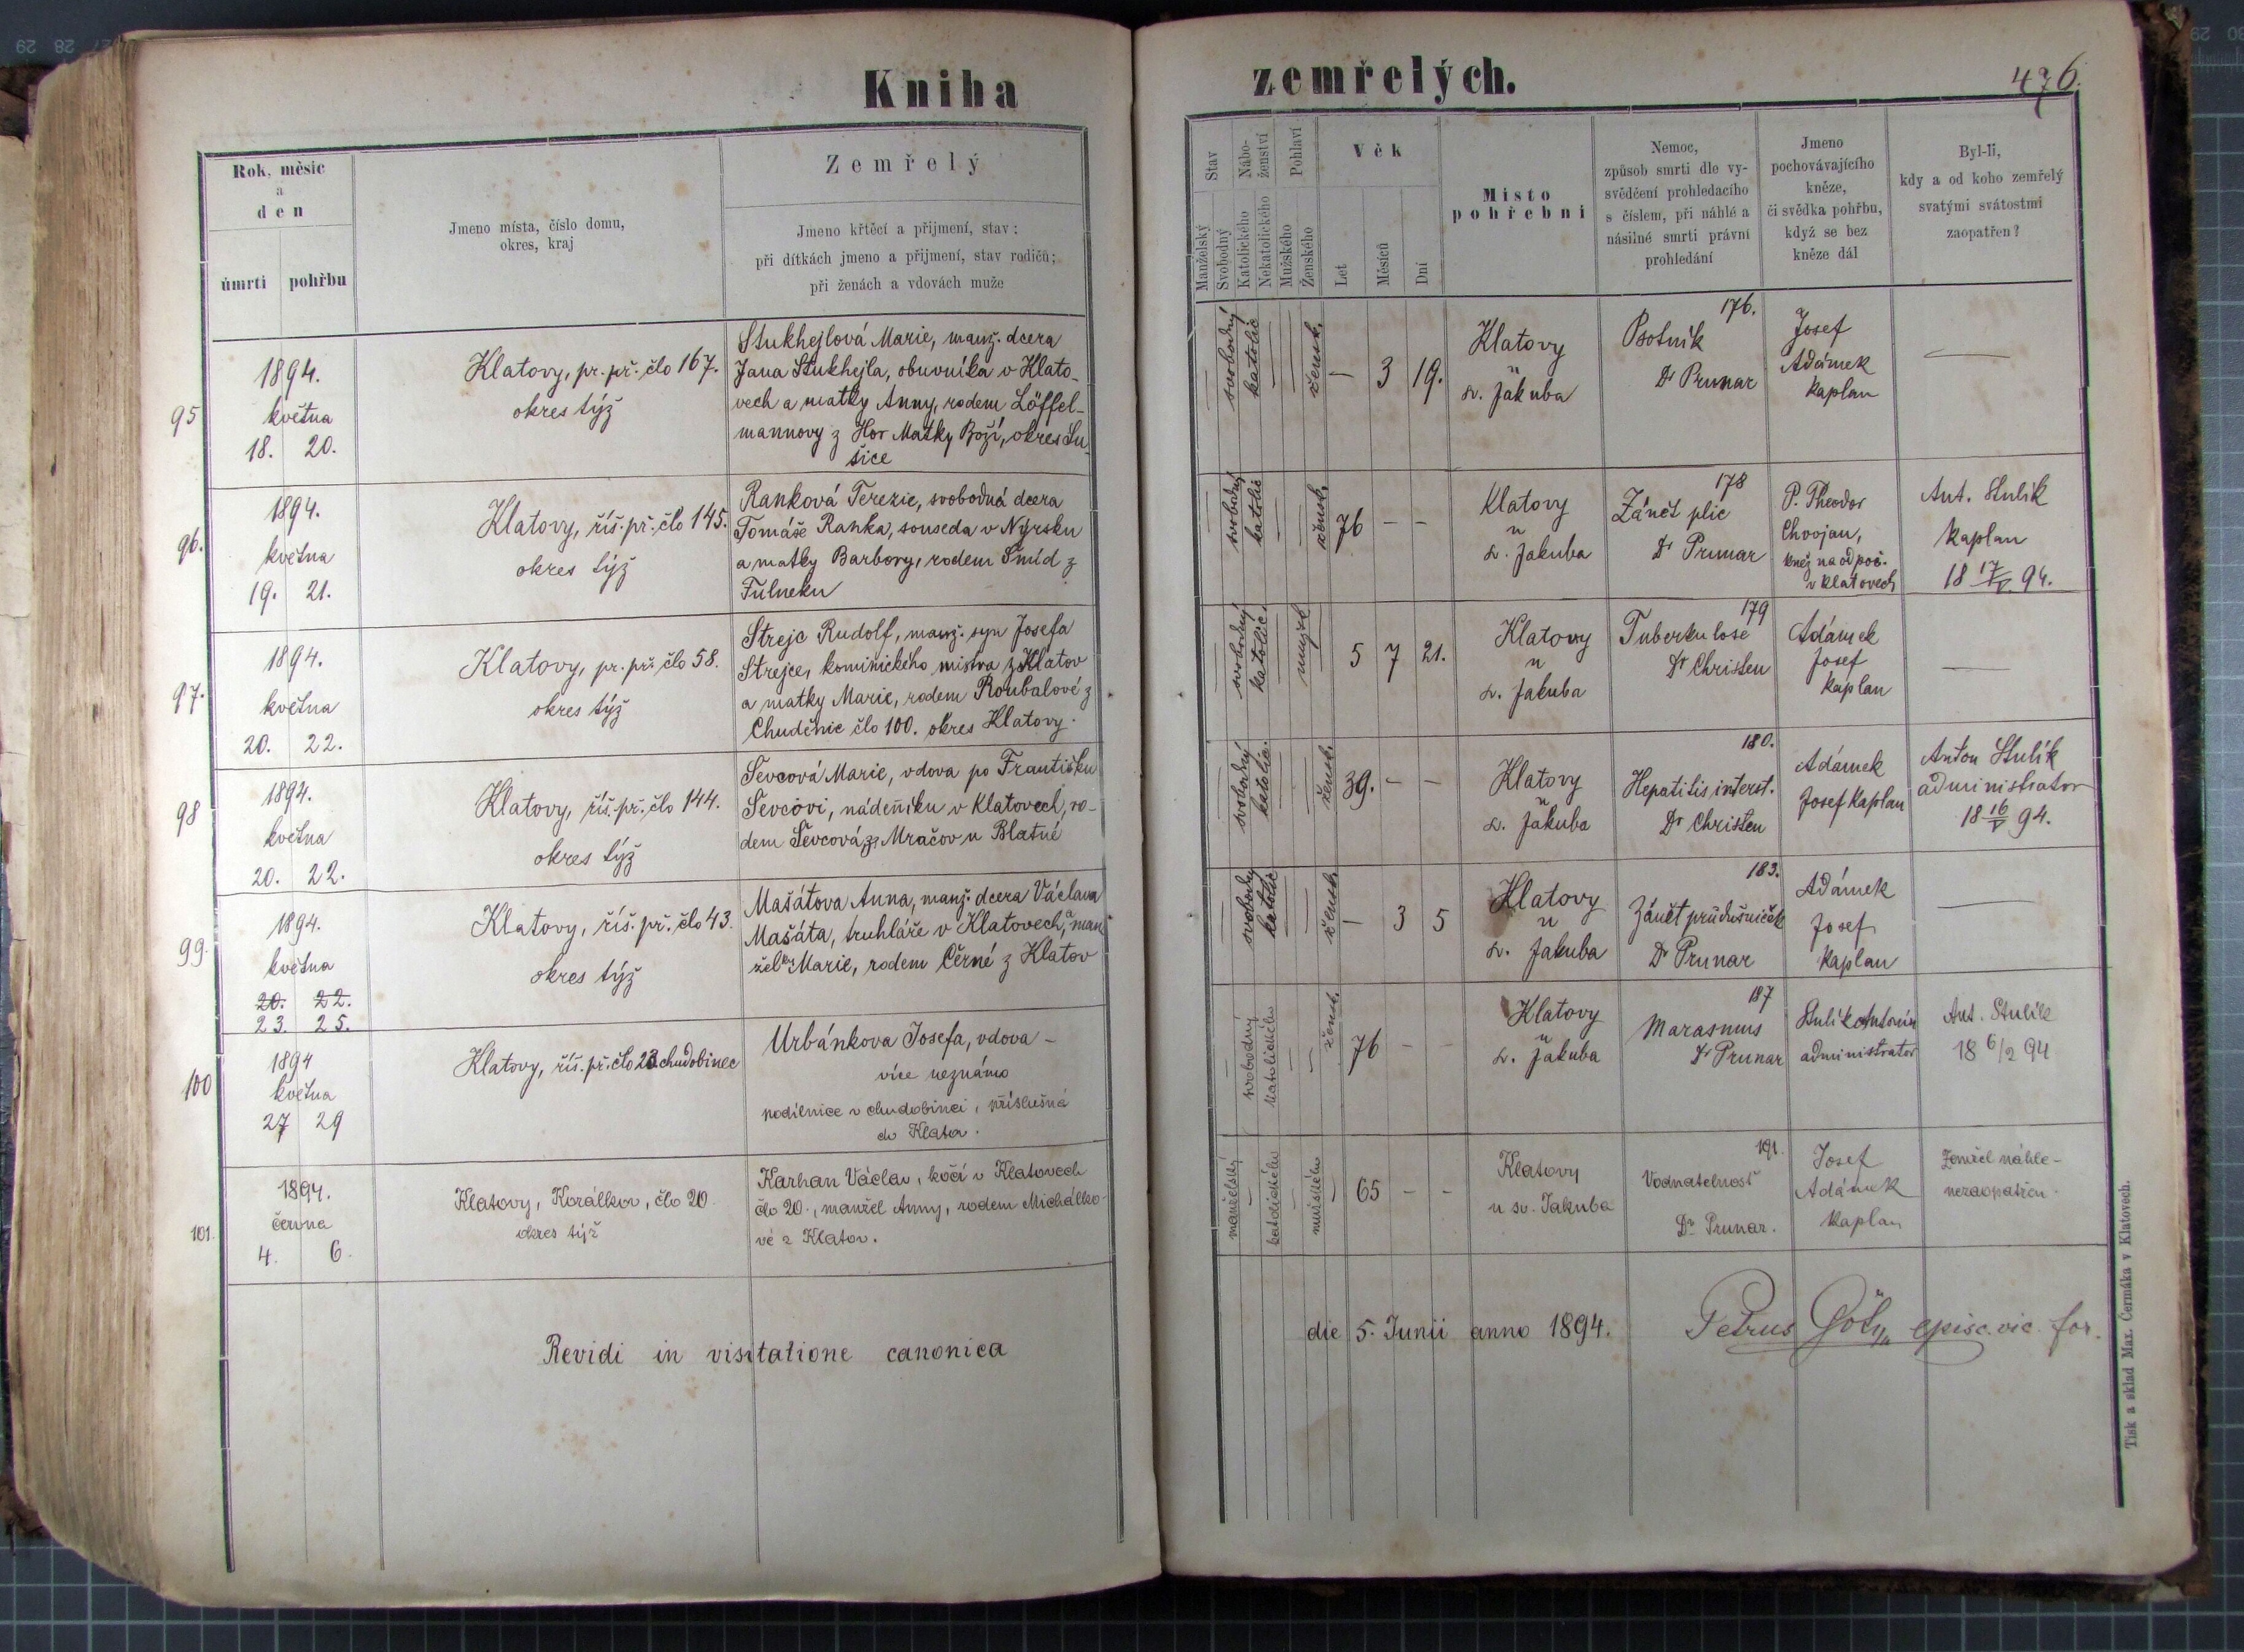 Kniha
zemřelých.
476.
Rok, měsíc
a
den
úmrtí
pohřbu
Jmeno místa, číslo domu,
okres, kraj
Zemřelý
Jmeno křtěcí a přijmení, stav;
při dítkách jmeno a přijmení, stav rodičů;
při ženách a vdovách muže
Stav
Nábo-
ženství
Pohlaví
Manželský
Svobodný
Katolického
Nekatolického
Mužského
Ženského
Věk
Let
Měsíců
Dní
Místo
pohřební
Nemoc,
způsob smrti dle vy-
svědčení prohledacího
s číslem, při náhlé a
násilné smrti právní
prohledání
Jmeno
pochovávajícího
kněze,
či svědka pohřbu,
když se bez
kněze dál
Byl-li,
kdy a od koho zemřelý
svatými svátostmi
zaopatřen?
95
1894.
května
18. 20.
Klatovy, pr. př. člo 167.
okres týž
Stukhejlová Marie, manž. dcera
Jana Stukhejla, obuvníka v Klato-
vech a matky Anny, rodem Löffel-
mannovy z Hor Matky Boží, okres Su-
šice
svobodný
katolic
žensk.
— 3 19.
Klatovy
u
sv. Jakuba
176.
Psotník
Dr Prunar
Josef
Adámek
kaplan
—
96.
1894.
května
19. 21.
Klatovy, říš. př. člo 145.
okres týž
Ranková Terezie, svobodná dcera
Tomáše Ranka, souseda v Nýrsku
a matky Barbory, rodem Šmíd z
Fulneku
svobodný
katolic
žensk.
76 - -
Klatovy
u
sv. Jakuba
178
Zánět plic
Dr Prunar
P. Theodor
Chvojan,
kněz na odpoč.
v Klatovech
Ant. Stulík
kaplan
18 17/V 94.
97.
1894.
května
20. 22.
Klatovy, pr. př. člo 58.
okres týž
Strejc Rudolf, manž. syn Josefa
Strejce, kominického mistra z Klatov
a matky Marie, rodem Roubalové z
Chuděnic člo 100. okres Klatovy.
svobodný
katolic.
mužsk
5 7 21.
Klatovy
u
sv. Jakuba
179
Tuberkulose
Dr Christen
Adámek
Josef
kaplan
—
98
1894.
května
20. 22.
Klatovy, říš. př. člo 144.
okres týž
Ševcová Marie, vdova po Františku
Ševcovi, nádeníku v Klatovech, ro-
dem Ševcová z Mračov u Blatné
svobodný
katolic.
žensk.
39. - -
Klatovy
u
sv. Jakuba
180.
Hepatitis interst.
Dr Christen
Adámek
Josef kaplan
Anton Stulík
administrator
18 16/V 94.
99.
1894.
května
20. 22.
23. 25.
Klatovy, říš. př. člo 43.
okres týž
Mašátova Anna, manž. dcera Václava
Mašáta, truhláře v Klatovech, a man
želky Marie, rodem Černé z Klatov
svobodný
katolic
žensk.
— 3 5
Klatovy
u
sv. Jakuba
183.
Zánět průdušniček
Dr Prunar
Adámek
Josef
kaplan
—
100
1894
května
27 29
Klatovy, říš. př. člo 23 chudobinec
Urbánkova Josefa, vdova -
více neznámo
podílnice v chudobinci, příslušná
do Klatov.
svobodný
katolického
žensk.
76 - -
Klatovy
u
sv. Jakuba
187
Marasmus
Dr Prunar
Stulík Antonín
administrator
Ant. Stulík
18 6/2 94
101.
1894.
června
4. 6.
Klatovy, Korálkov, člo 20
okres týž
Karhan Václav, kočí v Klatovech
člo 20., manžel Anny, rodem Michálko-
vé z Klatov.
manželský
katolického
mužského
65 - -
Klatovy
u sv. Jakuba
191.
Vodnatelnost
Dr Prunar.
Josef
Adámek
kaplan
Zemřel náhle -
nezaopatřen.
Revidi in visitatione canonica
die 5. Junii anno 1894.
Petrus episc. vic. for.
Tisk a sklad Max. Čermáka v Klatovech.